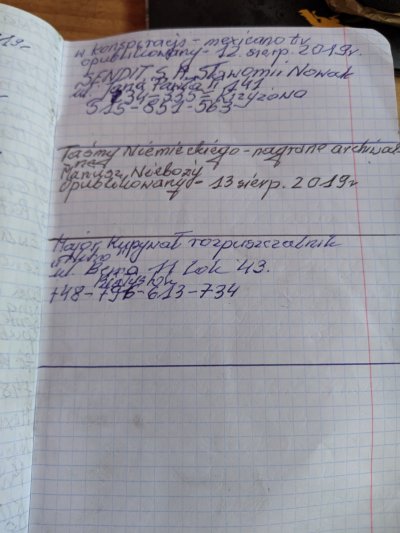 19r
w konspiracji - mexicano tv
opublikowany - 12 sierp. 2019r.
SENDIT S.A. Sławomir Nowak
ul. Jana Pawła II 141
34-335 = Krzyżowa
515-851-563
Taśmy Niemieckiego - nagrane archiwal
Janusz Niebozy
opublikowany - 13 sierp. 2019r
Major rozpuszczalnik
ul. Bema 11 lok 43.
748-796-613-734